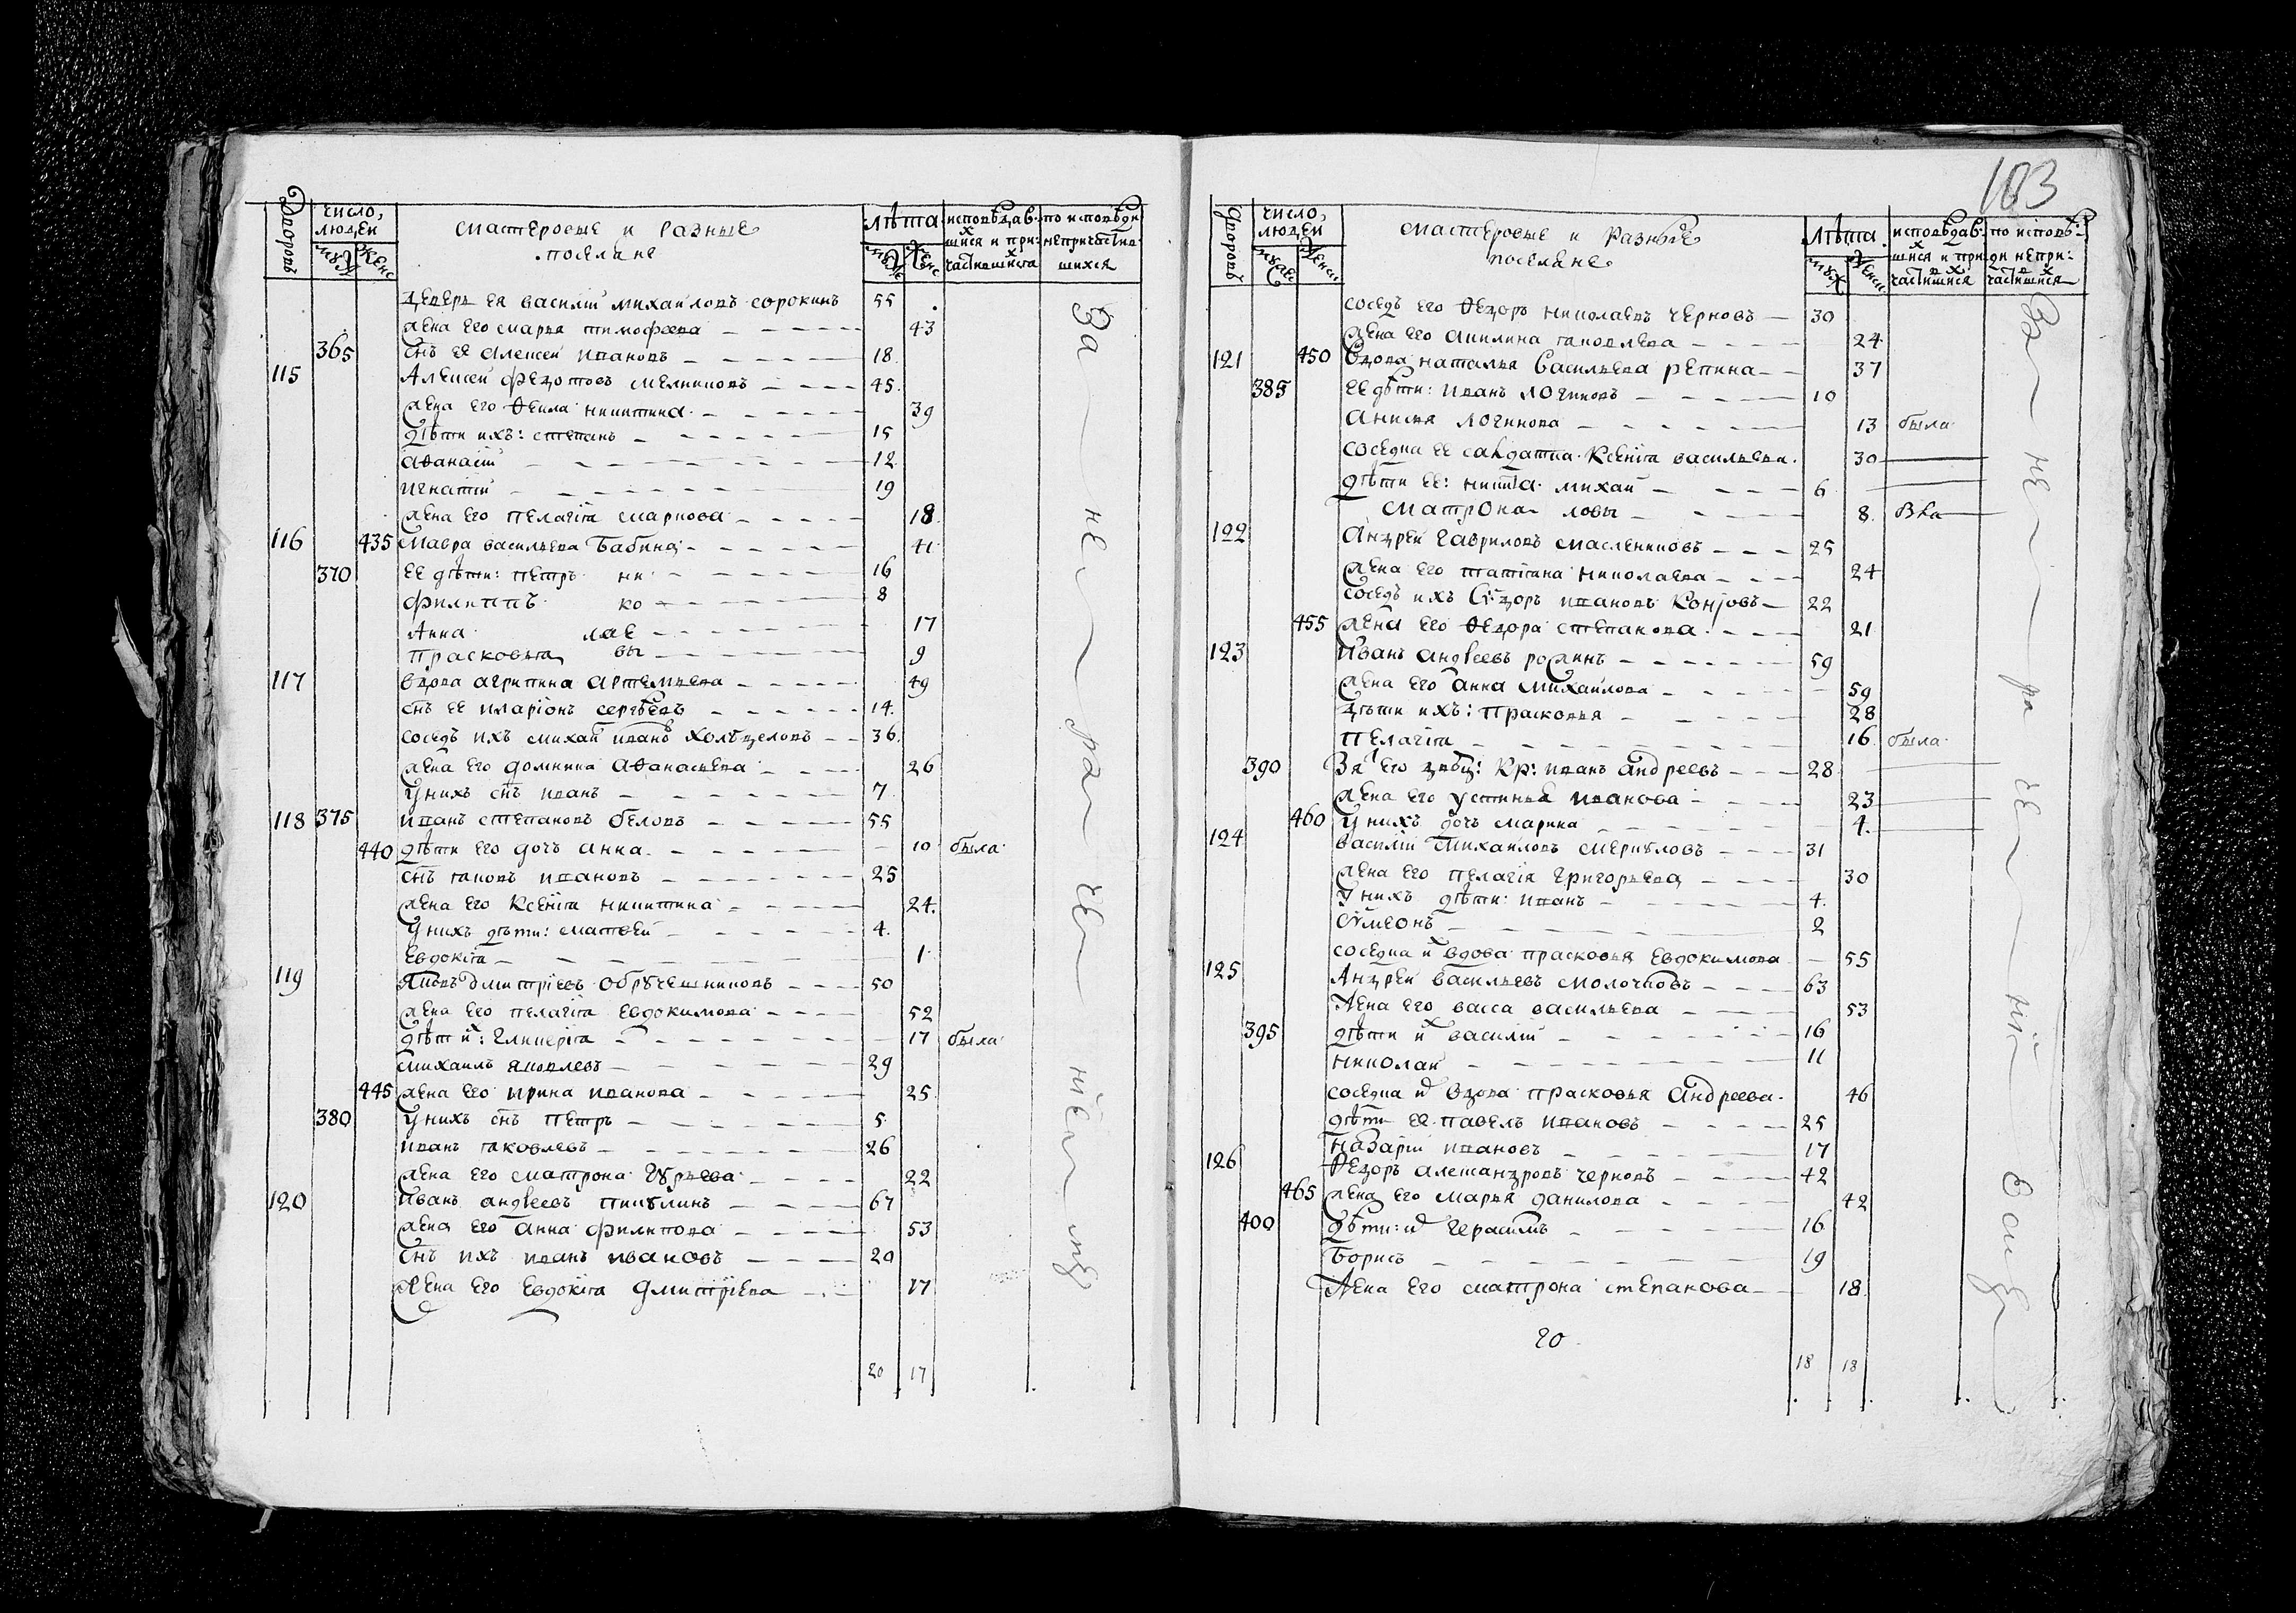 Дворовъ число людей мастеровые и разные лѣта исповѣдав по исповѣди
муж женс поселяне муж женс шихся и при непричастив
частившихся шихся
деверь ея василiи михаиловъ сорокинъ 55
жена его марья тимофеева 43
365 снъ ее алексеи ивановъ 18
115 Алексеи федотовъ мелниковъ 45
жена его ѳекла никитина 39
дѣти ихъ: степанъ 15
аѳанасiи 12
игнатiи 19
жена его пелагiя маркова 18
116 435 мавра васильева бабина 41
370 ее дѣти: петръ ни 16
филиппъ ко 8
Анна лае 17
прасковья вы 9
117 вдова агрипина артемьева 49
снъ ее иларiонъ сергѣевъ 14
соседъ ихъ михаи иванъ холъделовъ 36
жена его домника аѳанасьева 26
у нихъ снъ иванъ 7
118 375 иванъ степановъ беловъ 55
440 дѣти его дочь анна 10 была
снъ яковъ ивановъ 25
жена его ксенiя никитина 24
у нихъ дѣти: матвеи 4
евдокiя 1
119 яковъ дмитрiевъ обручешниковъ 50
жена его пелагiя евдокимова 52
дѣти их: гликерiя 17 была
михаилъ яковлевъ 29
445 жена его ирина иванова 25
380 у нихъ снъ петръ 5
иванъ яковлевъ 26
жена его матрона гурьева 22
120 иванъ андреевъ пикулинъ 67
жена его анна филипова 53
снъ ихъ иванъ ивановъ 20
жена его евдокiя дмитрiева 17
20 17
За не ра че нiемъ
103
дворовъ число людей мастеровые и разные лѣта исповѣдав по исповѣ
муже женск поселяне муж женск шихся и при ди непри
частившихся частившихся
соседъ его ѳедоръ николаевъ черновъ 30
жена его акилина яковлева 24
121 450 вдова наталья васильева репина 37
385 ее дѣти: иванъ логиновъ 10
анисья логинова 13 была
соседка ее салдатка ксенiя васильева 30
дѣти ее: никита михаи 6
матрона ловы 8
122 андреи гавриловъ масленниковъ 25
жена его татiана николаева 24
соседъ ихъ ивановъ 22
455 жена его ѳедора степанова 21
123 иванъ андреевъ рожинъ 59
жена его анна михаилова 59
дѣти ихъ: прасковья 28
пелагiя 16 была
390 его кр: иванъ андреевъ 28
жена его устинья иванова 23
460 у нихъ дочь марина 4
124 василiи михаиловъ меркуловъ 31
жена его пелагiя григорьева 30
у нихъ дѣти: иванъ 4
сѵмеонъ 2
соседка их вдова прасковья евдокимова 55
125 Андреи васильевъ молочковъ 63
жена его васса васильева 53
395 дѣти их василiи 16
николаи 11
соседка их вдова прасковья андреева 46
дѣти ее павелъ ивановъ 25
назарiи ивановъ 17
126 ѳедоръ александровъ черновъ 42
465 жена его марья данилова 42
400 дѣти: их герасимъ 16
борисъ 19
жена его матрона степанова 18
20
18 18
За не ра че нiемъ